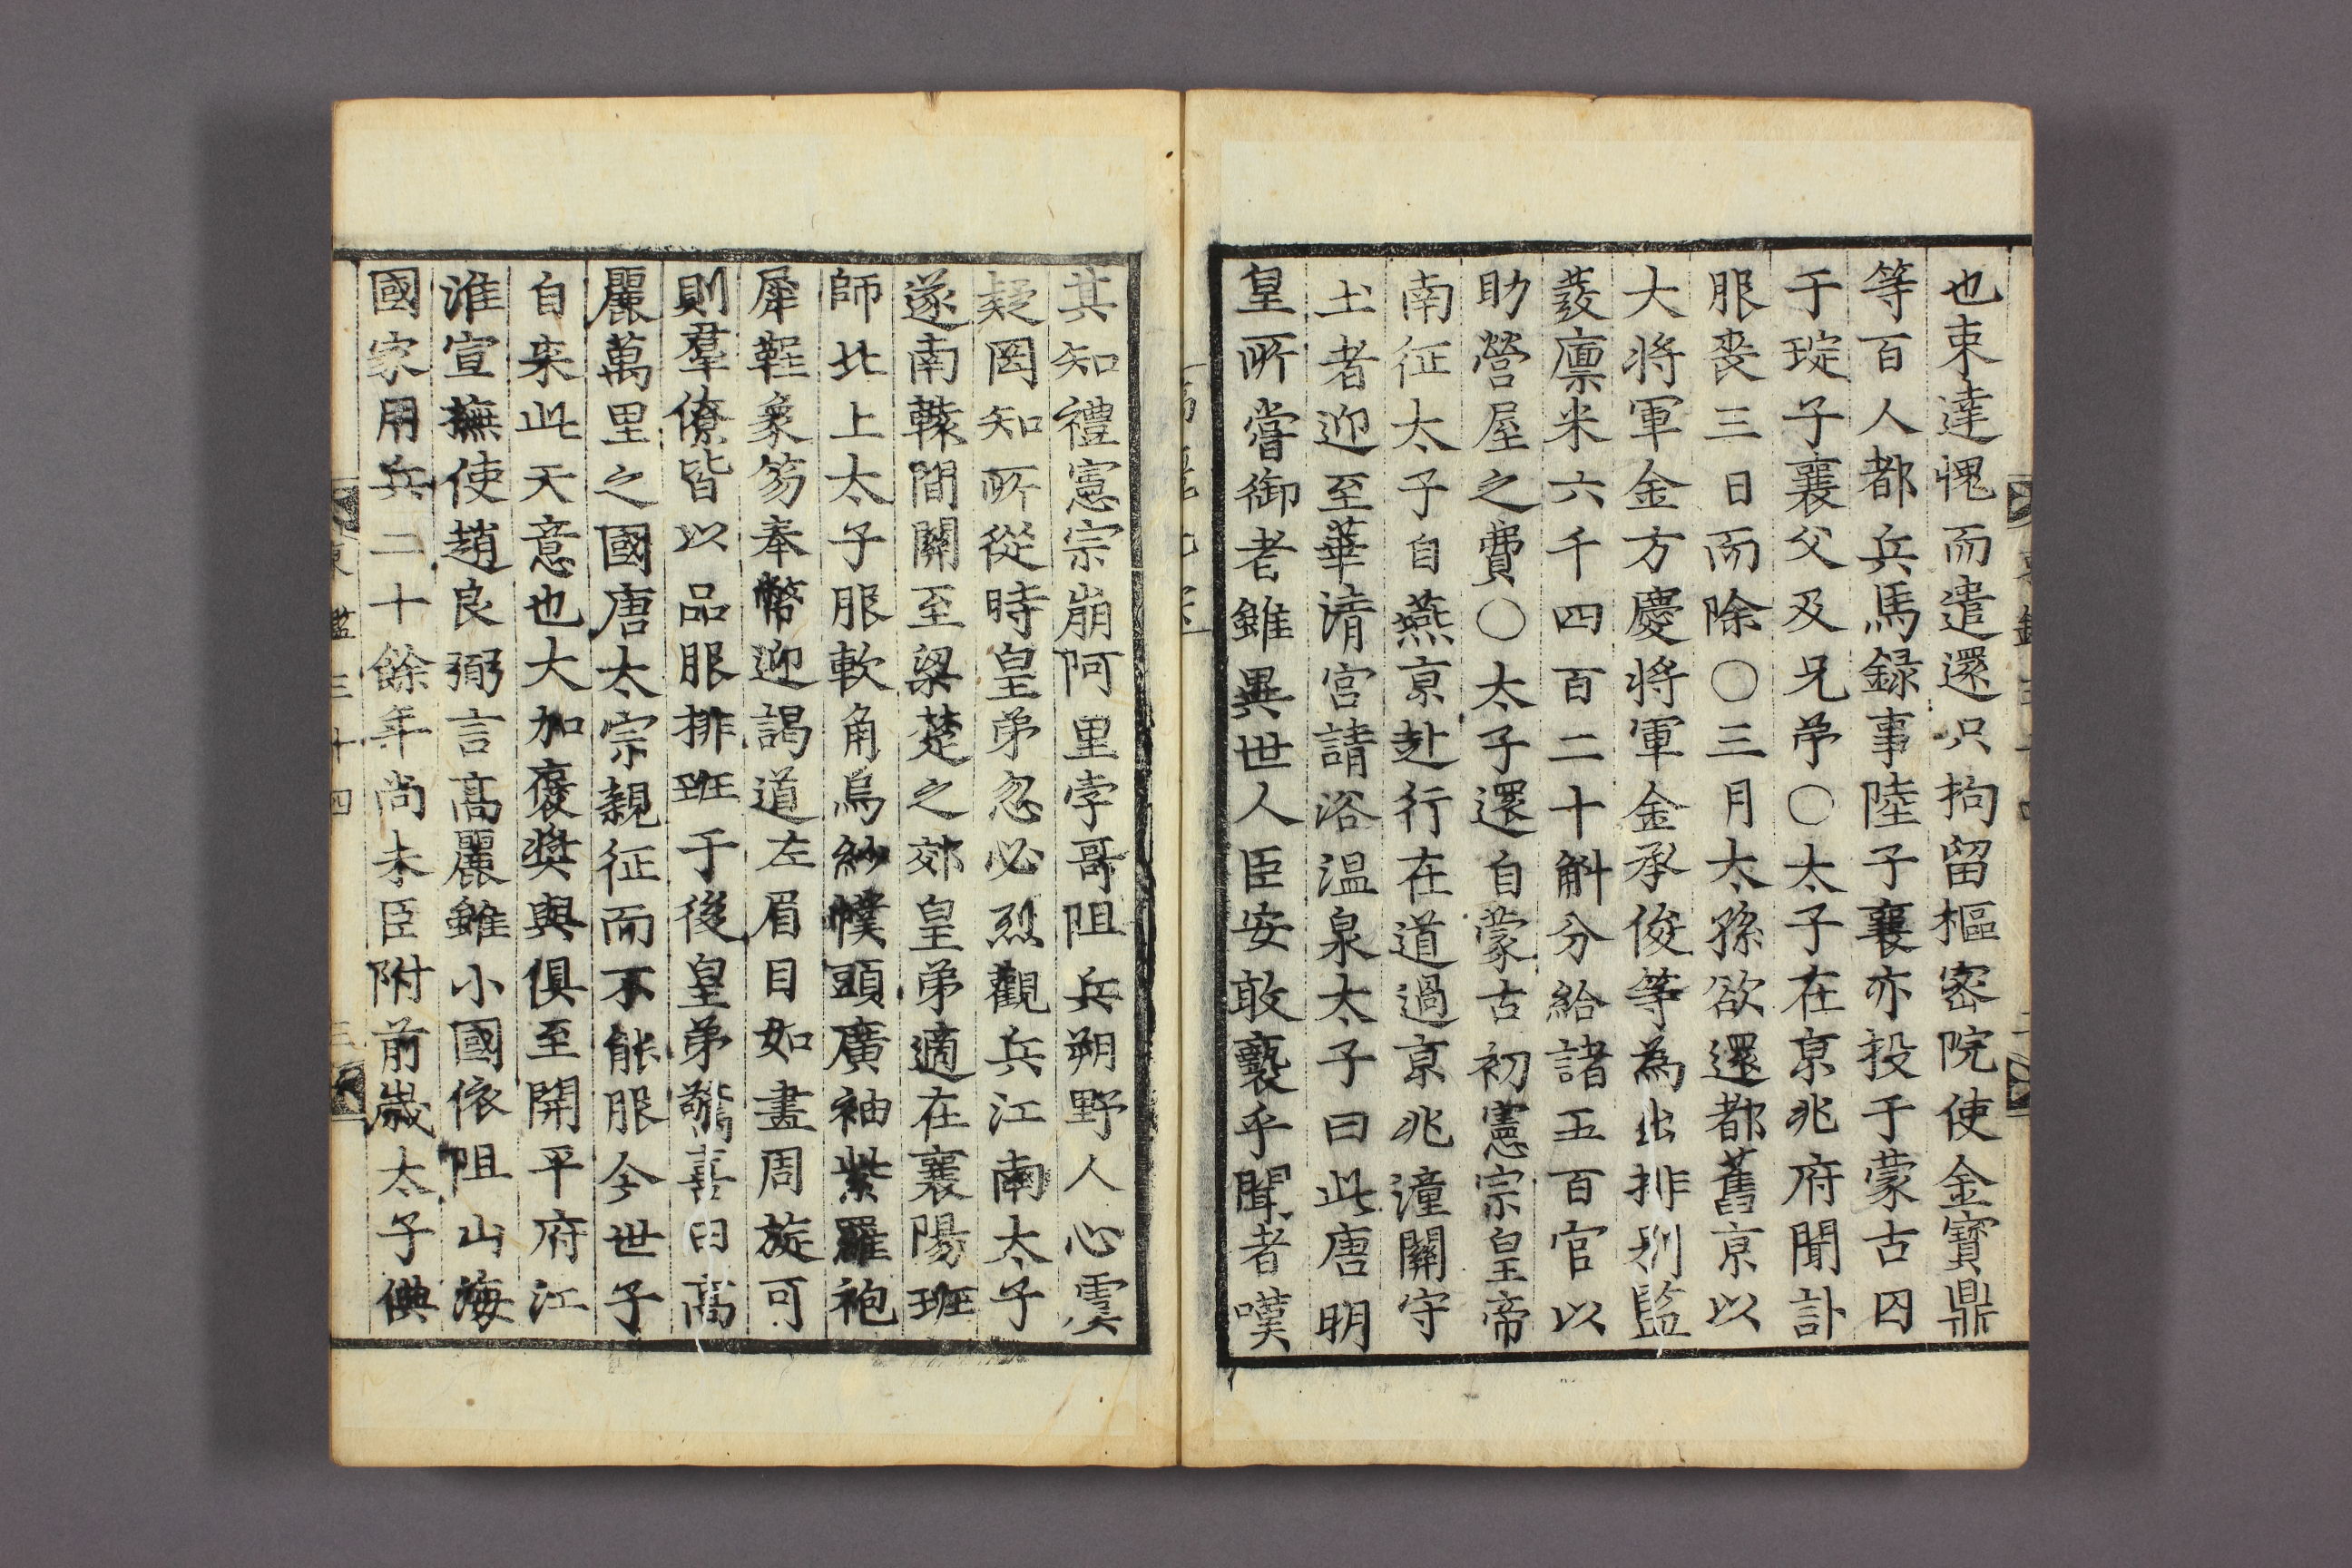 也束達愧而遣還只拘留樞密院使金寶鼎
等百人都兵馬錄事陸子襄亦投于蒙古囚
于琔子襄父及兄弟○太子在京兆府聞訃
服喪三日而除○三月太孫欲還都舊京以
大將軍金方慶將軍金承俊等為出排別監
發廩米六千四百二十斛分給諸五百官以
助營屋之費○太子還自蒙古初憲宗皇帝
南征太子自燕京赴行在道過京兆潼關守
土者迎至華淸宮請浴温泉太子曰此唐明
皇所嘗御者雖異世人臣安敢褻乎聞者嘆
其知禮憲宗崩阿里孛哥阻兵朔野人心虞
疑罔知所從時皇弟忽必烈觀兵江南太子
遂南轅間關至梁楚之郊皇弟適在襄陽班
師北上太子服軟角烏紗幞頭廣袖紫羅袍
犀鞓象笏奉幣迎謁道左眉目如畫周旋可
則羣僚皆以品服排班于後皇弟驚喜曰高
麗萬里之國唐太宗親征而不能服今世子
自来此天意也大加褒奬與俱至開平府江
淮宣撫使趙良弼言高麗雖小國依阻山海
國家用兵二十餘年尚未臣附前歲太子倎
東鑑三十四 三